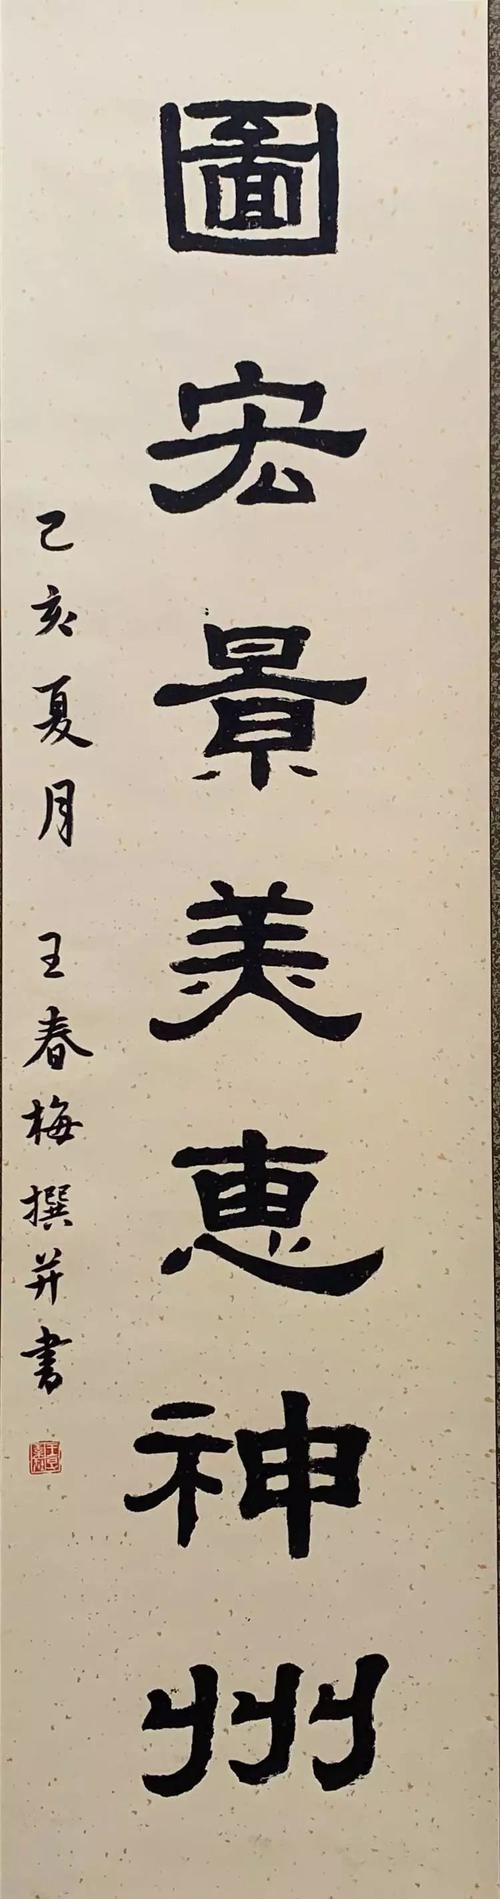 圖宏景美恵神州
己亥夏月 王春梅撰并書